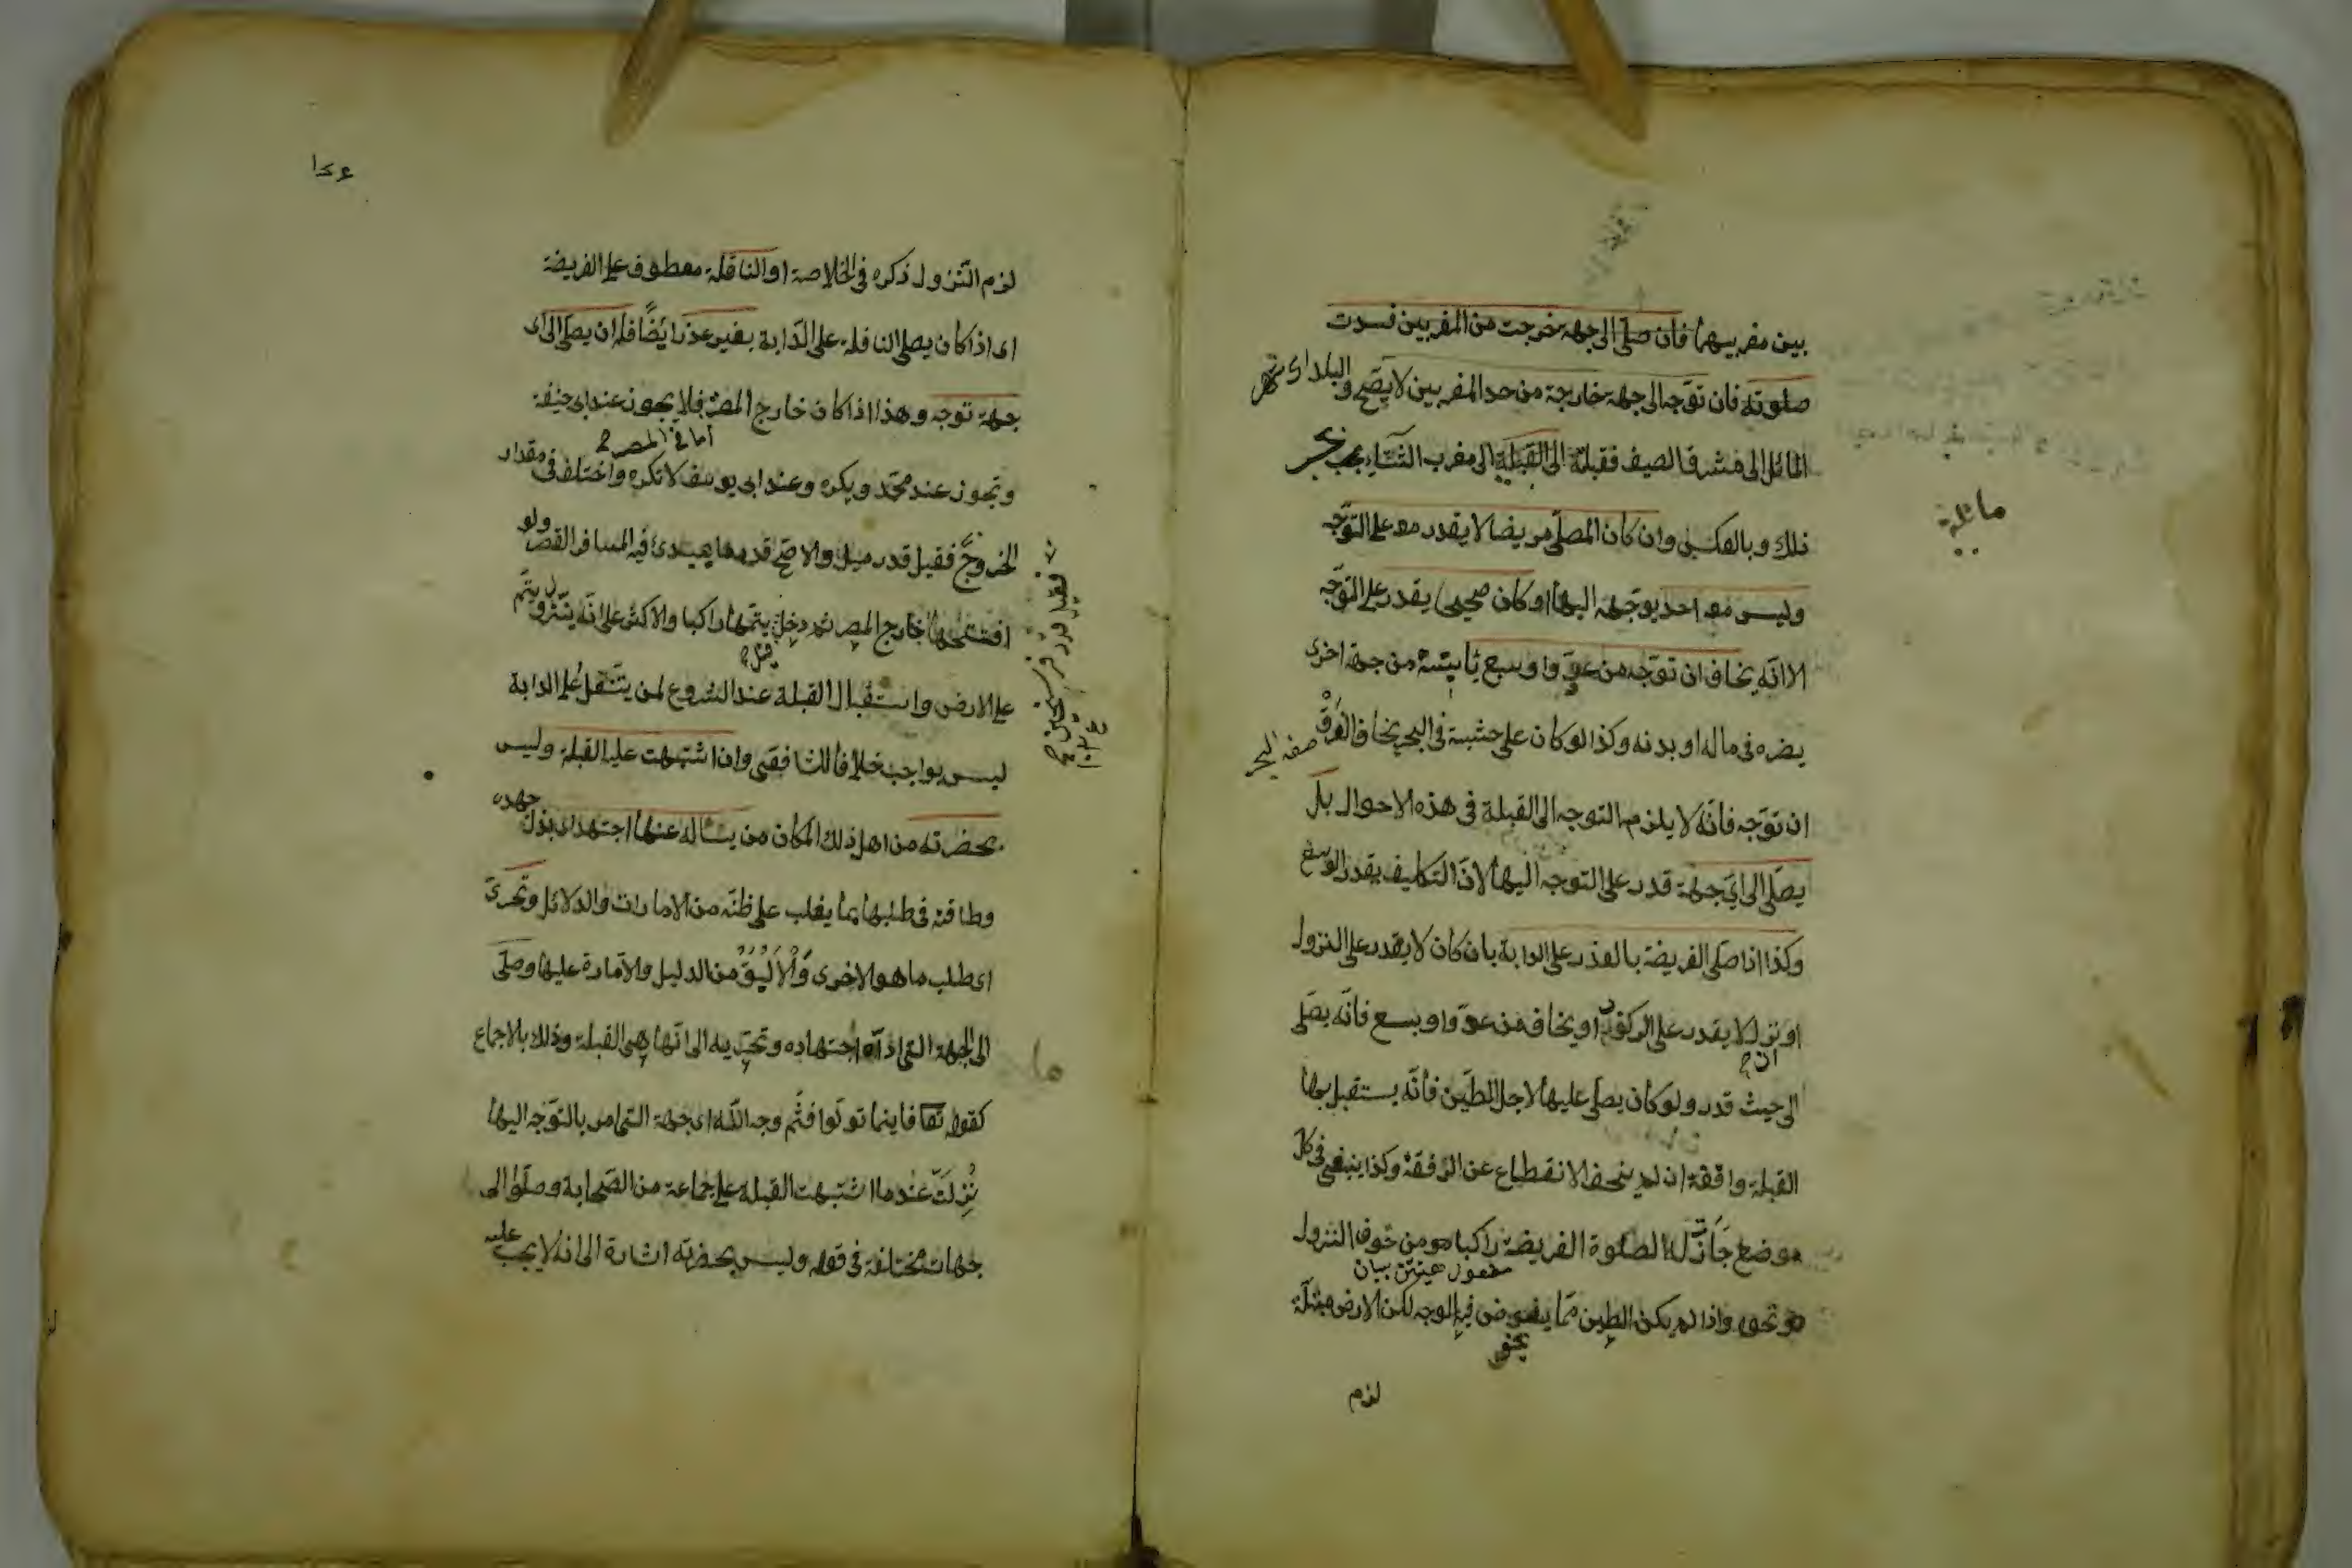 بين مغربيهما فان صلى الى جهة خرجت من المغربين فسدت
صلوته فان توجه الى جهة خارجة من حد المغربين لا يصح والبلد اى
المائل الى مشرق الصيف فقبلة الى القبلة الى مغرب الشتاء يجب
ذلك وبالعكس وان كان المصلى مريضا لا يقدر معه على التوجه
وليس معه احد يوجهه اليها او كان صحيحا يقدر على التوجه
الا انه يخاف ان توجه من عدو او سبع ثابتة من جهة اخرى
يضره فى ماله او بدنه وكذا لو كان على خشبة فى البحر يخاف الغرق
صفه البحر
ان توجه فانه لا يلزمه التوجه الى القبلة فى هذه الاحوال بل
يصلى الى اي جهة قدر على التوجه اليها لان التكليف بقدر الوسع
وكذا اذا صلى الفريضة بالعذر على الدابة بان كان لا يقدر على النزول
او نزل لا يقدر على الركوب او يخاف من عدو او سبع فانه يصلى
ان
الى حيث قدر ولو كان يصلى عليها لاجل الطين فانه يستقبل بها
القبلة واقفة ان لم يخف الانقطاع عن الرفقة وكذا ينبغى فى كل
موضع جاز له الصلوة الفريضة راكبا من خوف النزول
بيان
ونحوه واذا لم يكن الطين مما يغوض فيه الوجه لكن الارض مبتلة
لزم
مائلة
لزم النزول ذكره فى الخلاصة او النافلة معطوف على الفريضة
اى اذا كان يصلى النافلة على الدابة بغير عذر ايضا فله ان يصلى الى اى
جهة توجه وهذا اذا كان خارج المصر فلا يجوز عند ابى حنيفة
أما فى المصر
وتجوز عند محمد ويكره وعند ابى يوسف لا تكره واختلف فى مقدار
الخروج فقيل قدر ميل والاصح قدر ما يبتدئ فيه المسافر القصر ولو
افتتحها خارج المصر ثم دخل يتمها راكبا والاكثر على انه ينزل ويتم
قيل
على الارض واستقبال القبلة عند الشروع لمن يتنفل على الدابة
ليس بواجب خلافا للشافعى وان اشتبهت عليه القبلة وليس
بحضرته من اهل ذلك المكان من يسأله عنها اجتهد اى بذل جهده
وطاقته فى طلبها بما يغلب على ظنه من الامارات والدلائل وتحرى
اى طلب ما هو الاحرى والاليق من الدليل والامارة عليها وصلى
الى الجهة التى اداه اجتهاده وتحريه الى انها هى القبلة وذلك بالاجماع
كقوله تعا فاينما تولوا فثم وجه الله اى جهة التى امر بالتوجه اليها
نزلت عندما اشتبهت القبلة على جماعة من الصحابة وصلوا الى
جهات مختلفة فى قوله وليس بحضرته اشارة الى انه لا يجب عليه